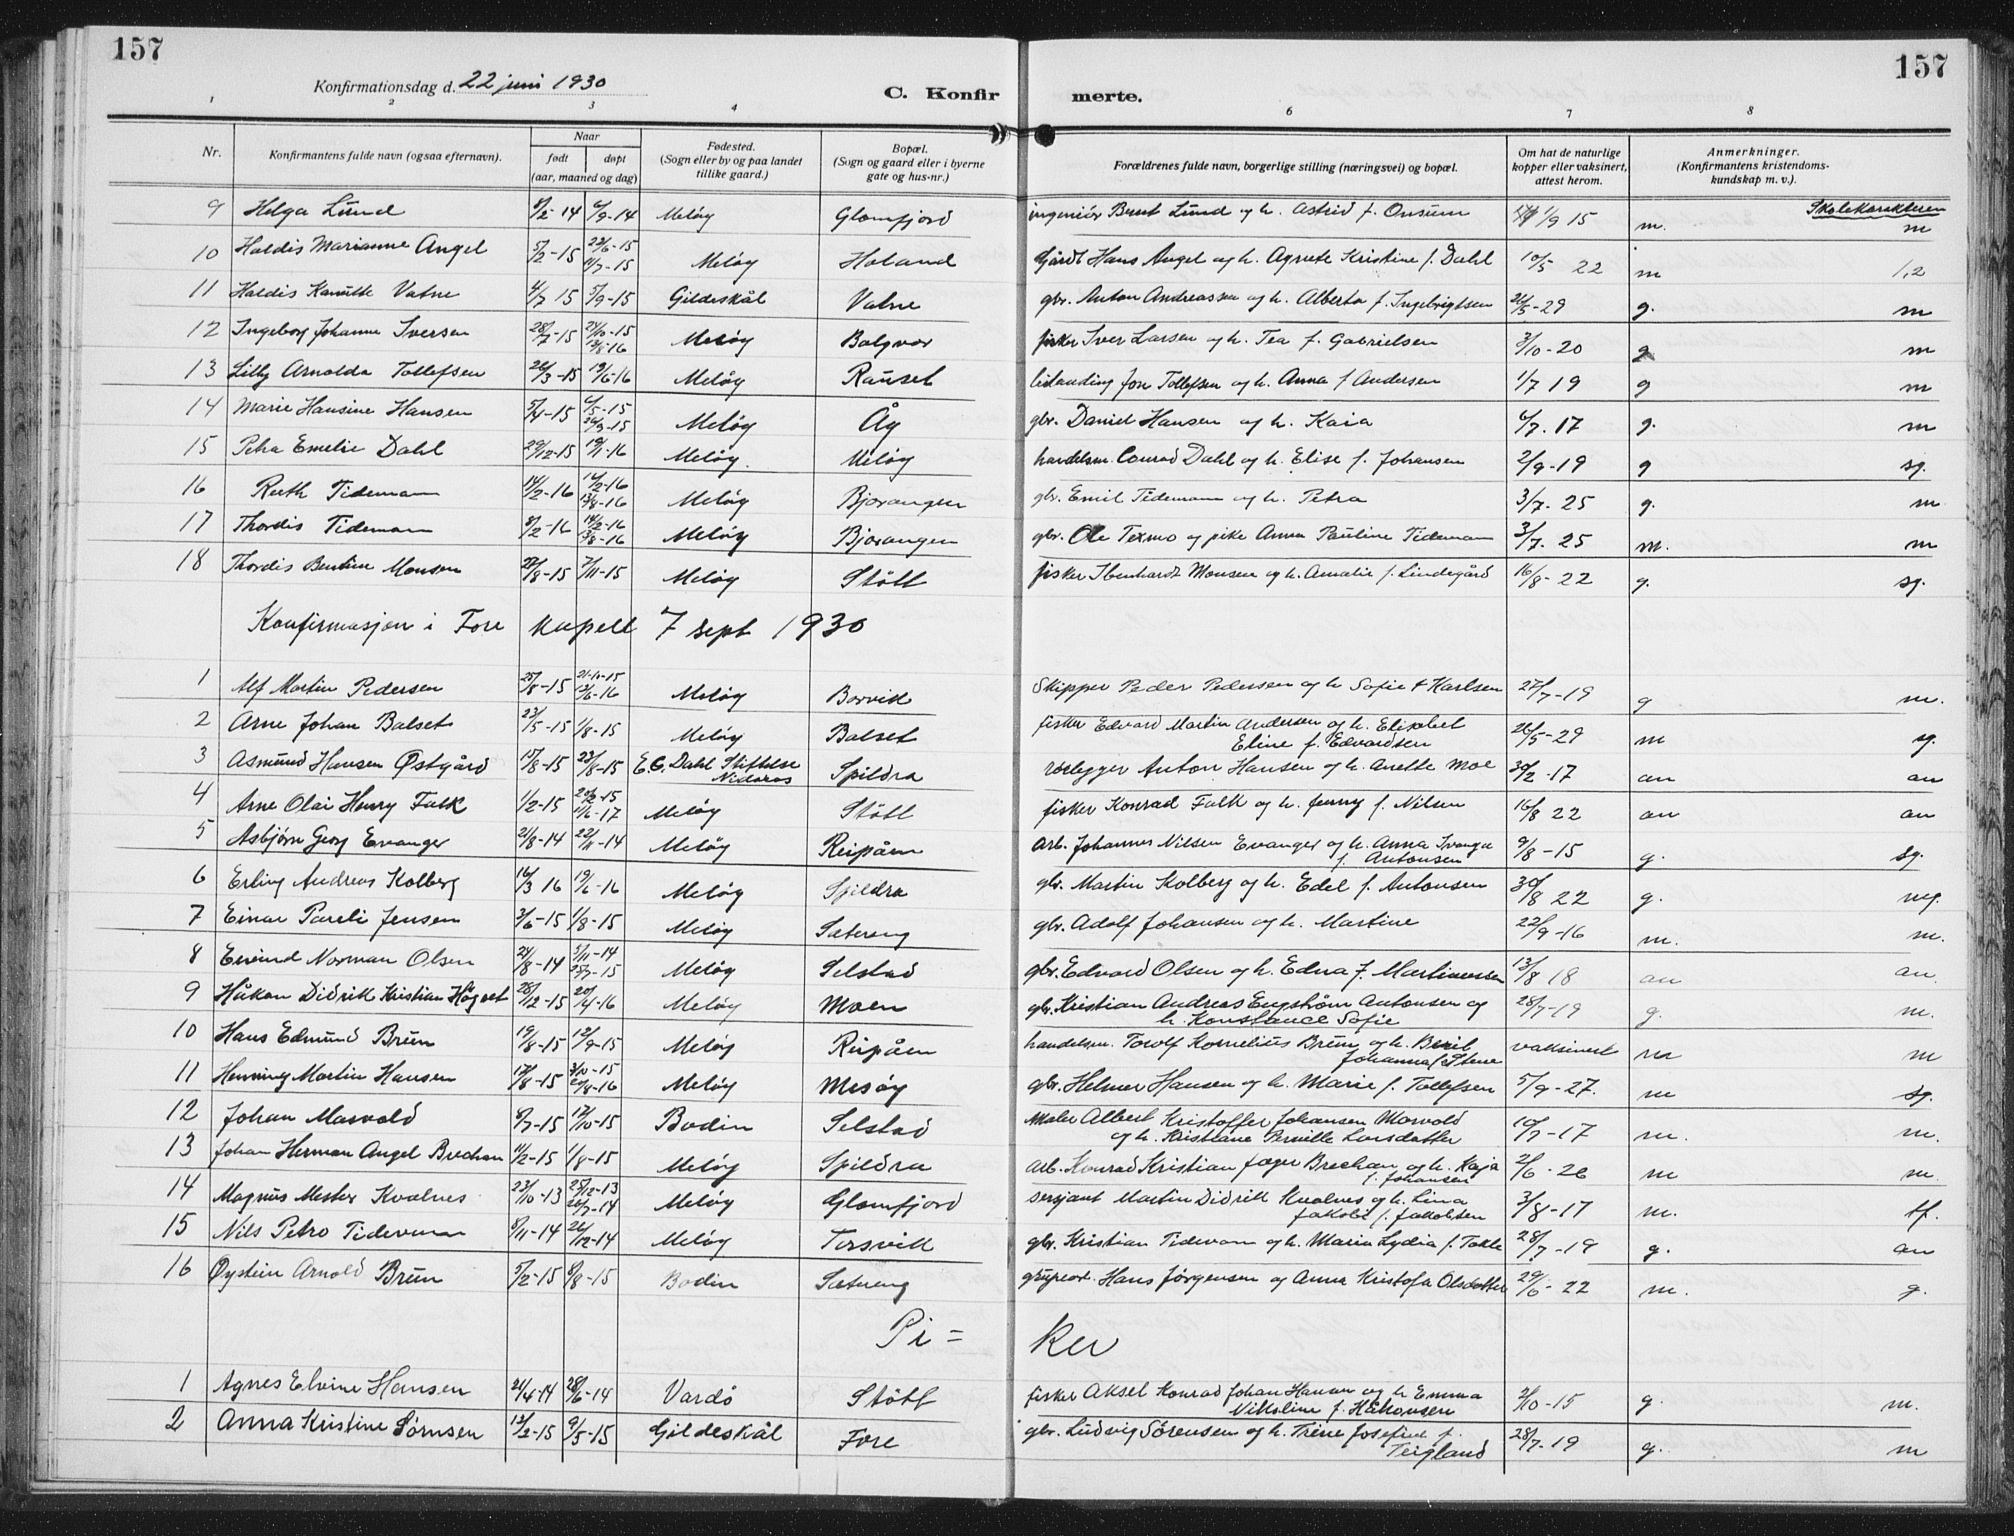 157
157
Konfirmationsdag d. 22 juni 1930
C. Konfir merte.
1 2 3 4 6 7 8
Nr. Konfirmantens fulde navn (ogsaa efternavn). Naar født døpt (aar, maaned og dag) Fødested. (Sogn eller by og paa landet tillike gaard.) Bopæl. (Sogn og gaard eller i byerne gate og hus-nr.) Forældrenes fulde navn, borgerlige stilling (næringsvei) og bopæl. Om hat de naturlige kopper eller vaksinert, attest herom. Anmerkninger. (Konfirmantens kristendoms-kundskap m. v.).
Skolekarakteren
9 Helga Lund 8/2-14 6/9-14 Meløy Glomfjord ingeniør Bernt Lund og h. Astrid f. Onsum 1/9 15 m. m
10 Haldis Marianne Angel 5/2-15 23/6-15 11/7-15 Meløy Haland Gårdb Hans Angel og h. Agnete Kristine f. Dahl 10/5 22 m 1,2
11 Haldis Kanutte Vatne 4/7 15 5/9-15 Gildeskål Vatne gbr. Anton Andreassen og h. Alberta f. Ingebrigtsen 26/5-29 g. m
12 Ingeborg Johanne Iversen 28/7-15 24/10-15 13/8-16 Meløy Bolgvær fisker Iver Larsen og h. Tea f. Gabrielsen 3/10-20 g m
13 Lilly Arnolda Tollefsen 26/3-15 19/6-16 Meløy Rauset Tollefsen og h. Anna f Andersen 1/7 19 g m
14 Marie Hansine Hansen 5/4-15 6/5-15 26/9-15 Meløy Åg gbr. Daniel Hansen og h. Kaia 6/7. 17 g. m
15 Petra Emelie Dahl 29/12-15 19/1-16 Meløy. Meløy handelsm. Conrad Dahl og h. Elise f. Johansen 2/9-19 g sg.
16 Ruth Tidemann 14/2-16 16/2-16 13/8-16 Meløy Bjørangen gbr. Emil Tidemann og h. Petra 3/7. 25 g. m
17 Thordis Tidemann 8/2-16 14/2-16 13/8-16 Meløy Bjørangen gbr. Ole Texmo og pike Anna Pauline Tidemann 3/7. 25 m. m
18 Thordis Bentine Monsen 27/8-15 7/11-15 Meløy Støtt fisker Ibenhardt Monsen og h. Amalie f. Lindegård 16/8-22 g. sg.
Konfirmasjon i Fore kapell 7 sept 1930
1 Alf Martin Pedersen 25/8-15 21-10-15 12/6-16 Meløy Borvik Skipper Peder Pedersen og h Sofie f Karlsen 27/7-19 g m.
2 Arne Johan Balset 23/5-15 1/8-15 Meløy Balset fisker Edvard Martin Andersen og h. Elisabet
Eline f. Edvardsen 26/5-29 m sg.
3 Asmund Hansen Østgård 17/8-15 23/8-15 E.C. Dahl Stiftelse Nidaros Spildra rørlegger Anton Hansen og h. Anette Moe 30/2-17 an an
4 Arne Olai Henry Falk 1/2-15 20/2-15 11/6-17 Meløy Støtt fisker Konrad Falk og h. Jenny f. Nilsen 16/8 22 an an
5 Asbjørn Georg Evanger 21/8-14 22/11-14 Meløy Reipåen arb. Johannes Nilsen Evanger og h. Anna
f. Antonsen 9/8-15 g. sg.
6 Erling Andreas Kolberg 16/3 16 19/6-16 Meløy Spildra gbr. Martin Kolberg og h. Edel f. Antonsen 30/8 22 g. mg.
7 Einar Pareli Jensen 3/6-15 1/8-15 Meløy Sætereng gbr. Adolf Johansen og h. Martine 22/9-16 m. m.
8 Eivind Norman Olsen 24/8-14 5/11-14 25/7-15 Meløy Selstad gbr. Edvard Olsen og h. Edna f. Martinussen 13/8 18 an an.
9 Håkon Didrik Kristian Høgset 28/12-15 20/4-16 Meløy Moen gbr. Kristian Andreas Engstrøm Antonsen og
h. Konstance Sofie 28/7-19 g. m.
10 Hans Edmund Brun 19/8-15 12/9-15 Meløy Reipåen handelsm. Torolf Kornelius Brun og h. Beril
Johanna f Stene vaksinert m m
11 Henning Martin Hansen 17/8-15 3/10-15 20/8-16 Meløy Mesøy gbr. Helmer Hansen og h. Marie f. Tollefsen 5/9-27. m sg.
12 Johan Marvold 8/7-15 17/10-15 Bodin Selstad Maler Albert Kristoffer Johansen Marvold
og h. Kristiane Pernille Larsdatter 10/7-17 m. m.
13 Johan Herman Angel Brechan 11/2-15 1/8-15 Meløy Spildra arb. Konrad Kristian Jæger Brechan og h. Kaja
f. Johansen 2/6-26 m m.
14 Magnus Mester Kvalnes 23/10-13 25/12-13 26/7-14 Meløy Glomfjord sersjant Martin Didrik Kvalnes og h. Lina
Jakobe f. Jakobsen 3/8-17 m. tf.
15 Nils Petro Tidemann 8/11-14 26/12-14 Meløy Torsvik gbr. Kristian Tidemann og h. Maria Lydia f. Tokle 28/7-19 g. an
16 Øystein Arnold Brun 5/2-15 8/8-15 Bodin Sætereng Hans Jørgensen og Anna Kristofa Olsdatter 29/6-22 m. g.
Pi = ker
1 Agnes Elvine Hansen 21/4-14 28/6-14 Vardø Støtt fisker Aksel Konrad Johan Hansen og h Emma
Nikoline f. Håkonsen 2/10-15 g. m.
2 Anna Kristine Sørnsen 12/2-15 9/5-15 Gildeskål Fore gbr. Ludvig Sørensen og h. Trine Josefine f.
Teigland 28/7-19 g. m